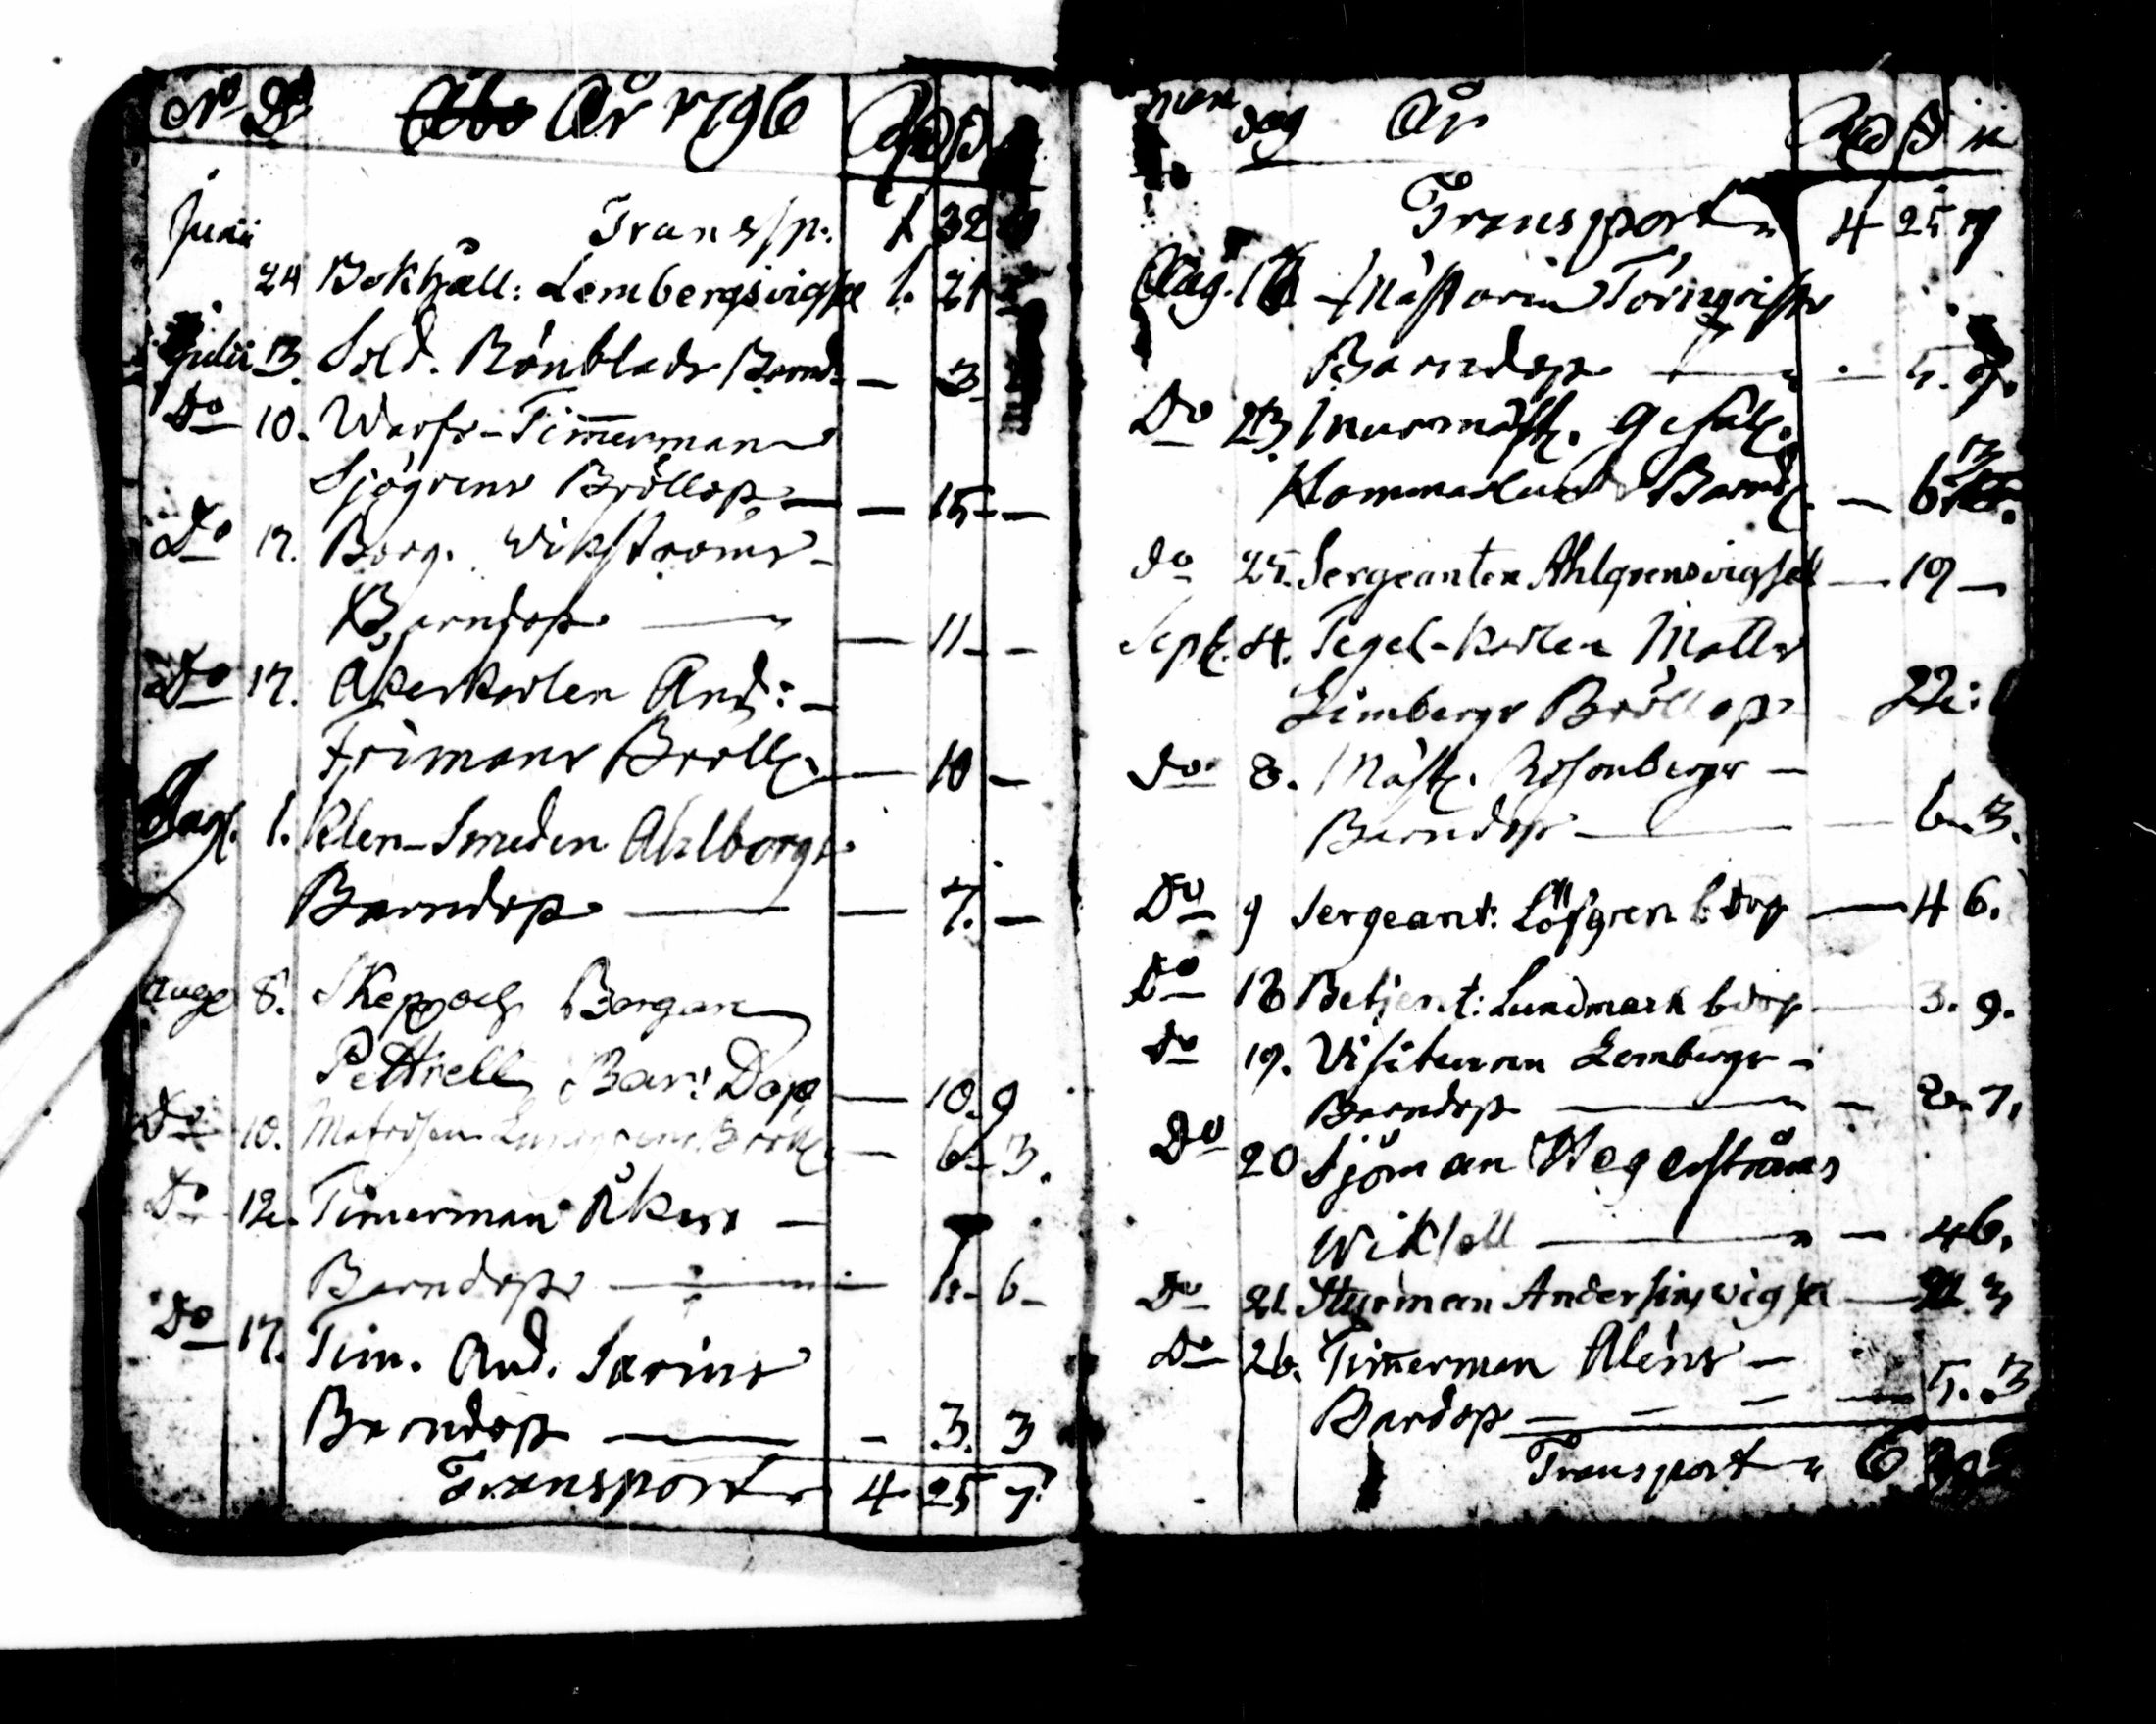 No Do Åbo År 1796 Rd s
Junii Transp. 1 32
24 Bokhåll: Lembergs vigsel 1. 21
Julii 3. Sold. Rönblads Barnd. — 3
Do 10. Warfs-Timmerman
Sjögrens Bröllop — — 15 —
Do 17. Borg. Wikströms -
Barndop — — 11 - -
Do 17. Åkerkarlen And: -
Frimans Bröll. — 10 —
Aug. 1. Klen-Smeden Ahlborgs
Barndop — — 7. —
Aug 8. Skepp och Borgare
Pettrell Bar: Dop — 10. 9
Do 10. Matrosen Bröll. — 6 - 3.
Do 12. Timerman Åkers —
Barndop — 6 -
Do 17. Tim. And. Sarins
Barndop — - 3. 3
Transport 4 25 7
dag År Rd s
Transport 4 25 7
Aug. Mästarin Törnqvists
Barndop — 5.
Do 23. Murmäst. Gesäll.
Hammarlunds Barnd. — 6.
do 25. Sergeanten Ahlgrens vigsel — 19 —
Sept. 4. Tegel-karlen Matts
Limbergs Bröllop 22:
do 8. Mäst. Rosenbergs —
Barndop — 6. 3.
Do 9 Sergeant: Löfgren b dop — 4 6.
Do 18 Betjent: Lundmark b dop — 3. 9.
Do 19. Visiteuren Lembergs -
Barndop — — 2. 7.
Do 20 Sjöman Wegerströms
Wiksell — — 4 6.
Do 21. Styrman Andersins vigsel — 3
Do 26. Timmerman Aléns —
Bardop — — — 5. 3
Transport 6